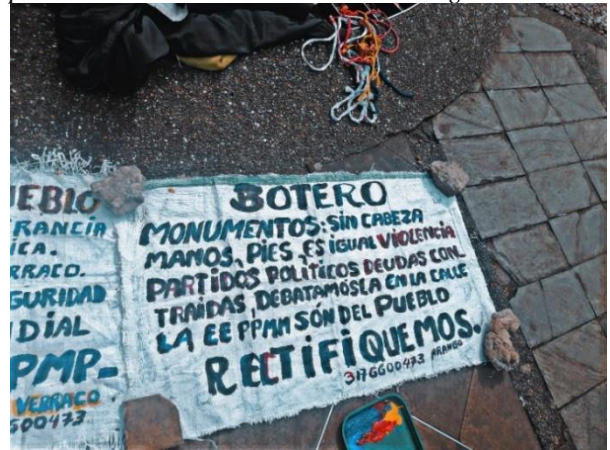 EBLO
RANCIA
ICA.
RRACO.
GURIDAD
DIAL
PMP-
VERRACO
600473
BOTERO
MONUMENTOS: SIN CABEZA
MANOS, PIES, ES IGUAL VIOLENCIA
PARTIDOS POLÍTICOS DEUDAS CON-
TRAIDAS, DEBATAMÓSLA EN LA CALLE
LA EE PPMM SÓN DEL PUEBLO
RECTIFIQUEMOS.
3176600473 ARANGO